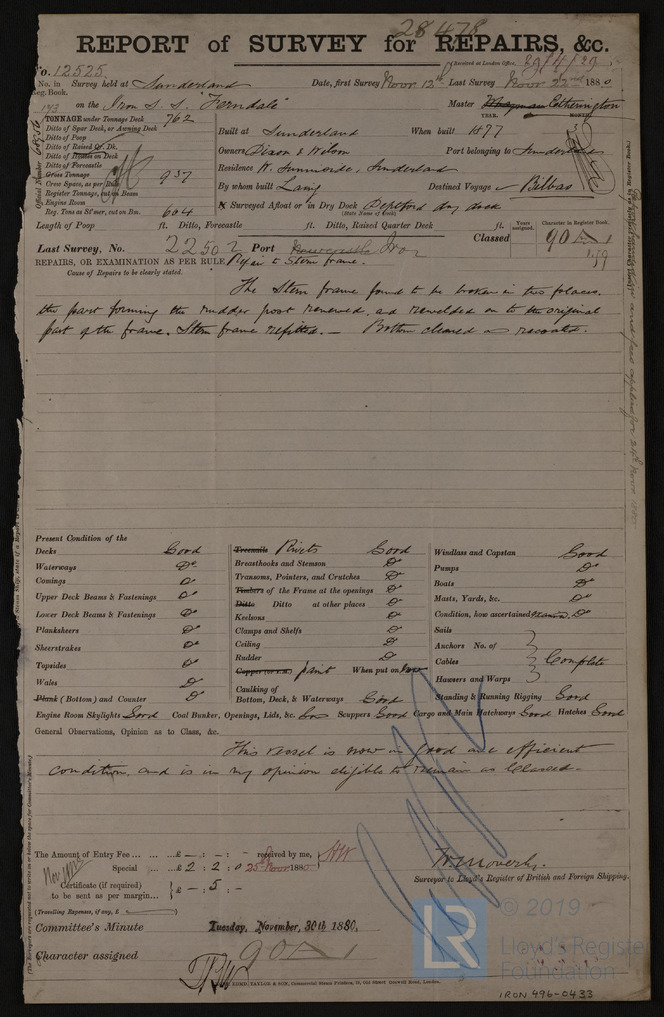 28478
REPORT of SURVEY for REPAIRS, &c.
No. 12525 Received at London Office, 29/4/29
No. in Reg. Book. Survey held at Sunderland Date, first Survey Novr 12th Last Survey Novr 22nd 1880
on the Iron S.S. "Ferndale" Master Catherington
TONNAGE under Tonnage Deck 762
Ditto of Spar Deck, or Awning Deck
Ditto of Poop
Ditto of Raised Qr. Dk.
Ditto of Houses on Deck
Ditto of Forecastle
Gross Tonnage 937
Crew Space, as per Rule
Register Tonnage, cut on Beam
Engine Room
Reg. Tons as St'mer, cut on Bm. 604
Official Number
Built at Sunderland When built 1877 YEAR. MONTH
Owners Dixon & Wilson Port belonging to Sunderland
Residence W. Sunniside, Sunderland
By whom built Laing Destined Voyage Bilbao
If Surveyed Afloat or in Dry Dock Deptford dry dock
(State Name of Dock)
Length of Poop ft. Ditto, Forecastle ft. Ditto, Raised Quarter Deck ft.
Last Survey, No. 22502 Port Newcastle Iron Classed Years assigned. Character in Register Book. 90 A 1
REPAIRS, OR EXAMINATION AS PER RULE Repair to Stern frame.
Cause of Repairs to be clearly stated.
The Stern frame found to be broken in two places.
the part forming the rudder post renewed, and rewelded on to the original
part of the frame. Stern frame refitted. — Bottom cleared & recoated.
Present Condition of the
Decks Good
Waterways Do
Comings Do
Upper Deck Beams & Fastenings Do
Lower Deck Beams & Fastenings Do
Planksheers Do
Sheerstrakes Do
Topsides Do
Wales Do
Plank (Bottom) and Counter Do
Treenails Rivets Good
Breasthooks and Stemson Do
Transoms, Pointers, and Crutches Do
Timbers of the Frame at the openings Do
Ditto Ditto at other places Do
Keelsons Do
Clamps and Shelfs Do
Ceiling Do
Rudder Do
Copper (or Y.M.) paint When put on now
Caulking of
Bottom, Deck, & Waterways Good
Windlass and Capstan Good
Pumps Do
Boats Do
Masts, Yards, &c. Do
Condition, how ascertained examd. Do
Sails
Anchors No. of
Cables Complete
Hawsers and Warps
Standing & Running Rigging Good
Engine Room Skylights Good Coal Bunker, Openings, Lids, &c. Good Scuppers Good Cargo and Main Hatchways Good Hatches Good
General Observations, Opinion as to Class, &c.
This vessel is now in good and efficient
condition, and is in my opinion eligible to remain as Classed.
The Amount of Entry Fee ... £ — : — : — received by me,
Special ... £ 2 : 2 : 0 25 Novr 1880
Certificate (if required) to be sent as per margin... £ — : 5 : —
(Travelling Expenses, if any, £
Surveyor to Lloyd's Register of British and Foreign Shipping.
Committee's Minute Tuesday, November, 30th 1880,
Character assigned 90 A 1
© 2019
LR
Lloyd's Register
Foundation
IRON 496-0433